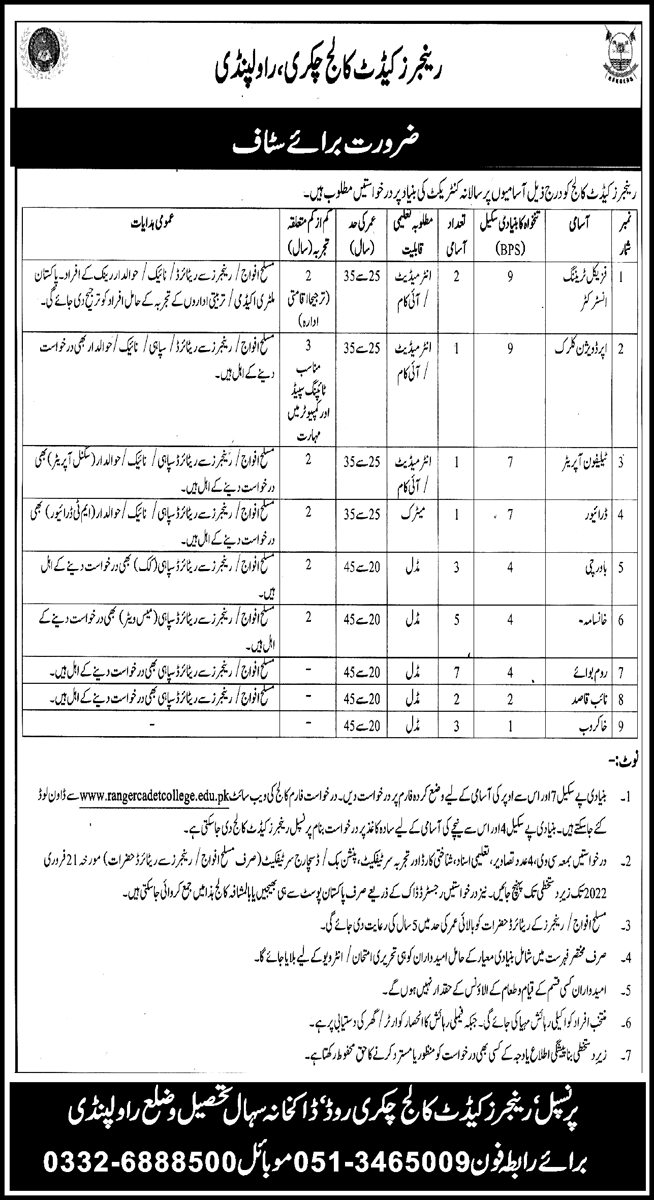 رینجرز کیڈٹ کالج چکری، راولپنڈی
RANGERS
ضرورت برائے سٹاف
رینجرز کیڈٹ کالج کو درج ذیل آسامیوں پر سالانہ کنٹریکٹ کی بنیاد پر درخواستیں مطلوب ہیں۔
نمبر شمار | آسامی | تنخواہ کا بنیادی سکیل (BPS) | تعداد آسامی | مطلوبہ تعلیمی قابلیت | عمر کی حد (سال) | کم از کم متعلقہ تجربہ (سال) | عمومی ہدایات
1 | فزیکل ٹریننگ انسٹرکٹر | 9 | 2 | انٹرمیڈیٹ / آئی کام | 25 سے 35 | 2 (ترجیحاً اقامتی ادارہ) | مسلح افواج / رینجرز سے ریٹائرڈ / نائیک / حوالدار رینک کے افراد۔ پاکستان ملٹری اکیڈمی / تربیتی اداروں کے تجربہ کے حامل افراد کو ترجیح دی جائے گی۔
2 | اپر ڈویژن کلرک | 9 | 1 | انٹرمیڈیٹ / آئی کام | 25 سے 35 | 3 مناسب ٹائپنگ سپیڈ اور کمپیوٹر میں مہارت | مسلح افواج / رینجرز سے ریٹائرڈ / سپاہی / نائیک / حوالدار بھی درخواست دینے کے اہل ہیں۔
3 | ٹیلیفون آپریٹر | 7 | 1 | انٹرمیڈیٹ / آئی کام | 25 سے 35 | 2 | مسلح افواج / رینجرز سے ریٹائرڈ سپاہی / نائیک / حوالدار (سگنل آپریٹر) بھی درخواست دینے کے اہل ہیں۔
4 | ڈرائیور | 7 | 1 | میٹرک | 25 سے 35 | 2 | مسلح افواج / رینجرز سے ریٹائرڈ سپاہی / نائیک / حوالدار (ایم ٹی ڈرائیور) بھی درخواست دینے کے اہل ہیں۔
5 | باورچی | 4 | 3 | مڈل | 20 سے 45 | 2 | مسلح افواج / رینجرز سے ریٹائرڈ سپاہی (کک) بھی درخواست دینے کے اہل ہیں۔
6 | خانسامہ- | 4 | 5 | مڈل | 20 سے 45 | 2 | مسلح افواج / رینجرز سے ریٹائرڈ سپاہی (میس ویٹر) بھی درخواست دینے کے اہل ہیں۔
7 | روم بوائے | 4 | 7 | مڈل | 20 سے 45 | - | مسلح افواج / رینجرز سے ریٹائرڈ سپاہی بھی درخواست دینے کے اہل ہیں۔
8 | نائب قاصد | 2 | 2 | مڈل | 20 سے 45 | - | مسلح افواج / رینجرز سے ریٹائرڈ سپاہی بھی درخواست دینے کے اہل ہیں۔
9 | خاکروب | 1 | 3 | مڈل | 20 سے 45 | - | -
نوٹ:-
1۔ بنیادی پے سکیل 7 اور اس سے اوپر کی آسامی کے لیے وضع کردہ فارم پر درخواست دیں۔ درخواست فارم کالج کی ویب سائٹ www.rangercadetcollege.edu.pk سے ڈاون لوڈ
کئے جاسکتے ہیں۔ بنیادی پے سکیل 4 اور اس سے نیچے کی آسامی کے لیے سادہ کاغذ پر درخواست بنام پرنسپل رینجرز کیڈٹ کالج دی جاسکتی ہے۔
2۔ درخواستیں بمعہ سی وی، 4 عدد تصاویر، تعلیمی اسناد، شناختی کارڈ اور تجربہ سرٹیفکیٹ، پنشن بک / ڈسچارج سرٹیفکیٹ (صرف مسلح افواج / رینجرز سے ریٹائرڈ حضرات) مورخہ 21 فروری
2022 تک زیر دستخطی تک پہنچ جائیں۔ نیز درخواستیں رجسٹرڈ ڈاک کے ذریعے صرف پاکستان پوسٹ سے ہی بھیجیں یا بالمشافہ کالج ہذا میں جمع کروائی جاسکتی ہیں۔
3۔ مسلح افواج / رینجرز کے ریٹائرڈ حضرات کو بالائی عمر کی حد میں 5 سال کی رعایت دی جائے گی۔
4۔ صرف مختصر فہرست میں شامل بنیادی معیار کے حامل امیدواران کو ہی تحریری امتحان / انٹرویو کے لیے بلایا جائے گا۔
5۔ امیدواران کسی قسم کے قیام و طعام کے الاؤنس کے حقدار نہیں ہوں گے۔
6۔ منتخب افراد کو اکیلی رہائش مہیا کی جائے گی۔ جبکہ فیملی رہائش کا انحصار کوارٹر / گھر کی دستیابی پر ہے۔
7۔ زیر دستخطی بنا پیشگی اطلاع یا وجہ کے کسی بھی درخواست کو منظور یا مسترد کرنے کا حق محفوظ رکھتا ہے۔
پرنسپل، رینجرز کیڈٹ کالج چکری روڈ، ڈاکخانہ سہال تحصیل و ضلع راولپنڈی
برائے رابطہ فون 051-3465009 موبائل 0332-6888500